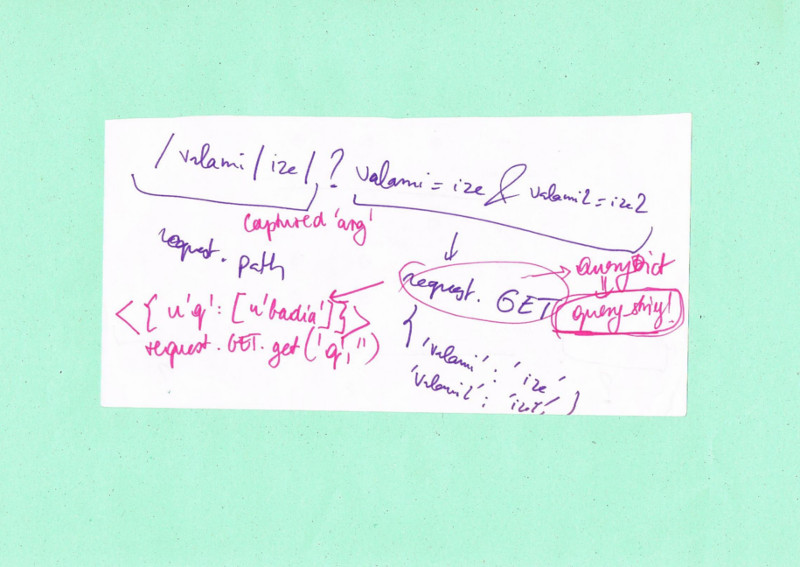 / valami / ize / ? valami = ize & valami2 = ize2
captured 'arg'
request. path
request. GET
queryDict
query_string!
<{ u'q': [u'badia']}>
request.GET.get('q','')
{ 'valami': 'ize'
'valami2': 'ize2' }